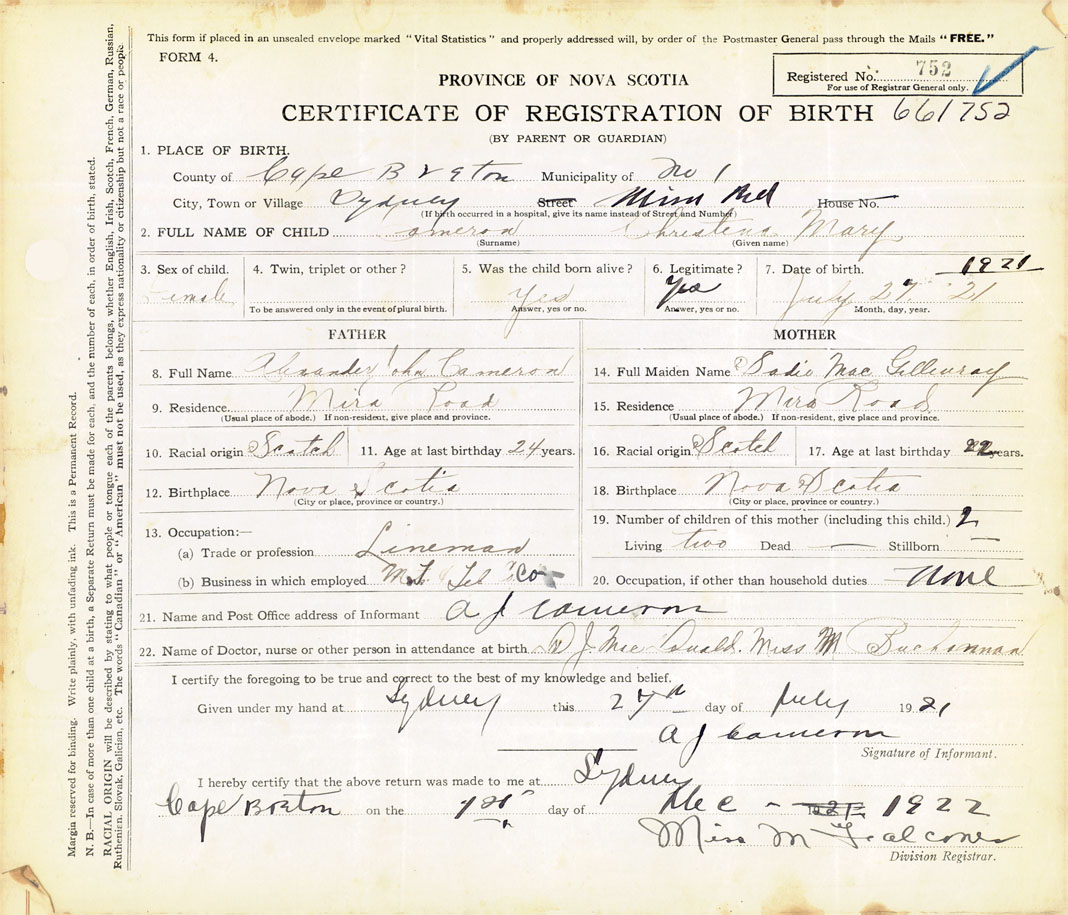 This form if placed in an unsealed envelope marked "Vital Statistics" and properly addressed will, by order of the Postmaster General pass through the Mails "FREE."
FORM 4.
Registered No. 752
For use of Registrar General only.
PROVINCE OF NOVA SCOTIA
CERTIFICATE OF REGISTRATION OF BIRTH 661752
(BY PARENT OR GUARDIAN)
1. PLACE OF BIRTH.
County of Cape Breton Municipality of No 1
City, Town or Village Sydney Street Mira Rd House No.
(If birth occurred in a hospital, give its name instead of Street and Number)
2. FULL NAME OF CHILD Cameron Christena Mary
(Surname) (Given name)
3. Sex of child. 4. Twin, triplet or other? 5. Was the child born alive? 6. Legitimate? 7. Date of birth. 1921
Female Yes Yes July 27 '21
To be answered only in the event of plural birth. Answer, yes or no. Answer, yes or no. Month, day, year.
FATHER
8. Full Name Alexander John Cameron
9. Residence Mira Road
(Usual place of abode.) If non-resident, give place and province.
10. Racial origin Scotch 11. Age at last birthday 24 years.
12. Birthplace Nova Scotia
(City or place, province or country.)
13. Occupation:—
(a) Trade or profession Lineman
(b) Business in which employed M.T. Tel Co
MOTHER
14. Full Maiden Name Sadie Mac Gillivray
15. Residence Mira Road
(Usual place of abode.) If non-resident, give place and province.
16. Racial origin Scotch 17. Age at last birthday 22 years.
18. Birthplace Nova Scotia
(City or place, province or country.)
19. Number of children of this mother (including this child.) 2
Living two Dead — Stillborn —
20. Occupation, if other than household duties None
21. Name and Post Office address of Informant A J Cameron
22. Name of Doctor, nurse or other person in attendance at birth. D J. Mac Donald. Miss M Buchannan
I certify the foregoing to be true and correct to the best of my knowledge and belief.
Given under my hand at Sydney this 27th day of July 1921
A J Cameron
Signature of Informant.
I hereby certify that the above return was made to me at Sydney
Cape Breton on the 1st day of Dec - 1922
Miss M Falconer
Division Registrar.
Margin reserved for binding. Write plainly, with unfading ink. This is a Permanent Record.
N. B.—In case of more than one child at a birth, a Separate Return must be made for each, and the number of each, in order of birth, stated.
RACIAL ORIGIN will be described by stating to what people or tongue each of the parents belongs, whether English, Irish, Scotch, French, German, Russian,
Ruthenian, Slovak, Galician, etc. The words "Canadian" or "American" must not be used, as they express nationality or citizenship but not a race or people.